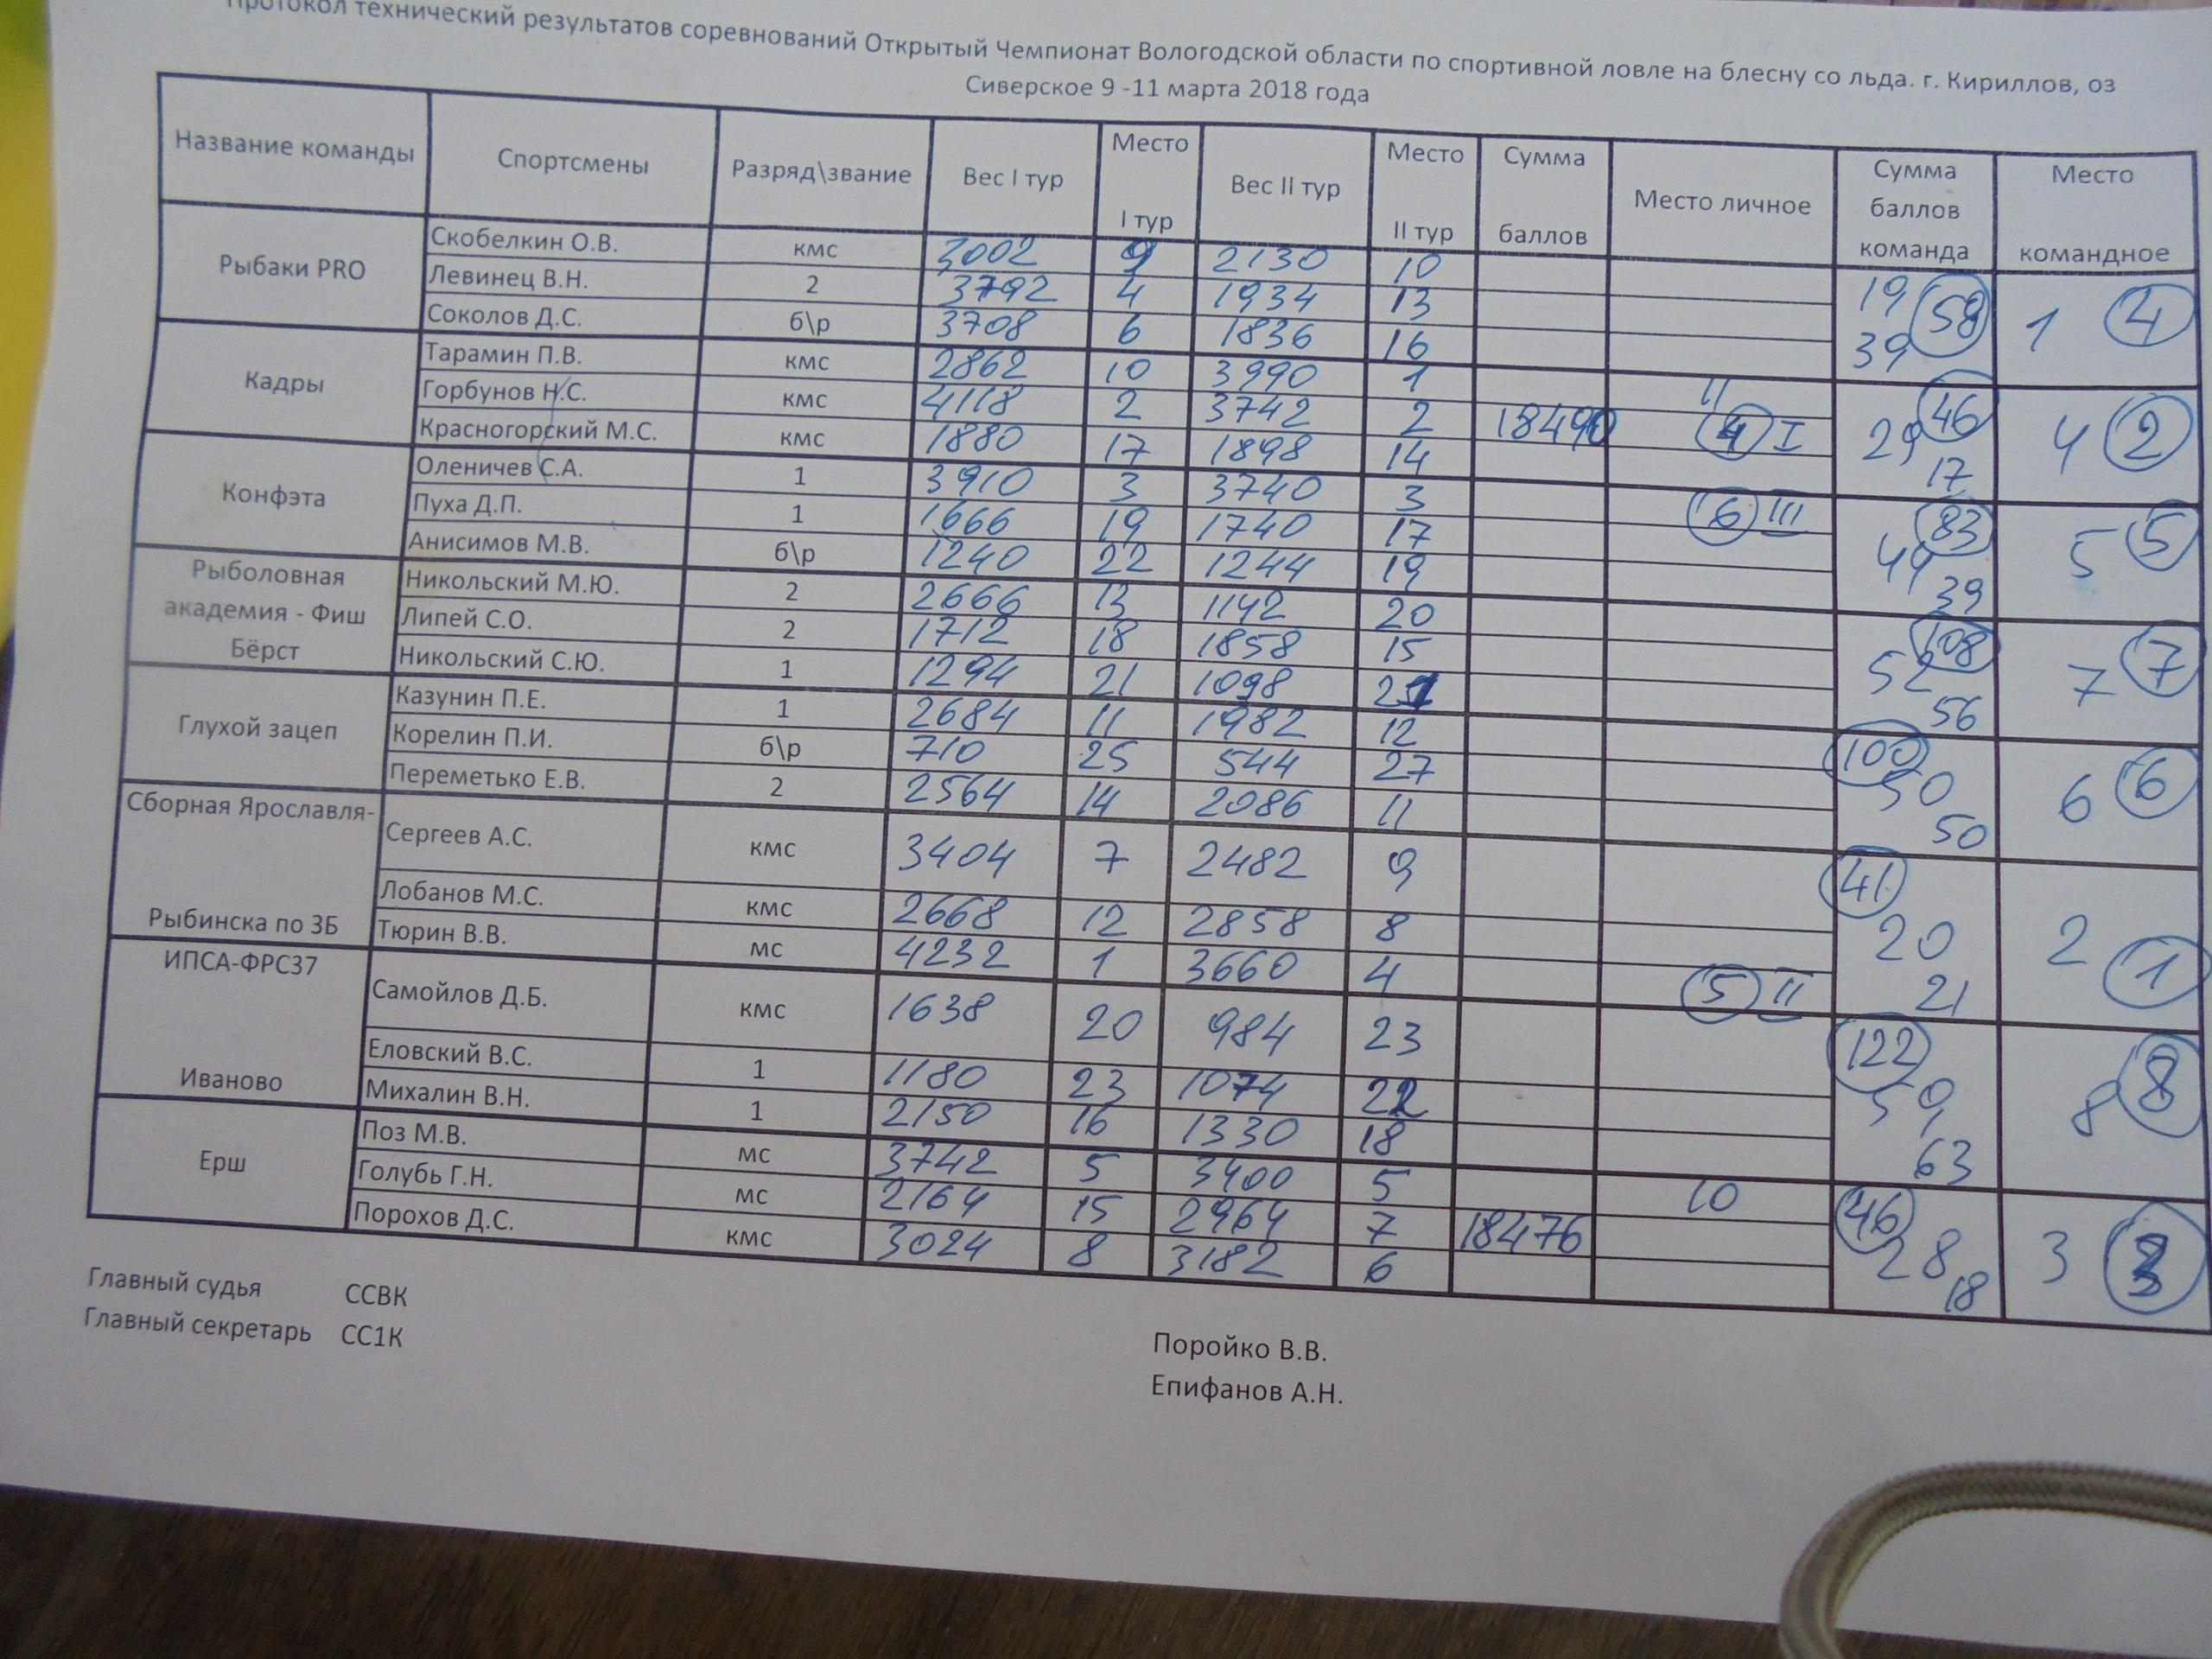 Протокол технический результатов соревнований Открытый Чемпионат Вологодской области по спортивной ловле на блесну со льда. г. Кириллов, оз
Сиверское 9 -11 марта 2018 года
Название команды Спортсмены Разряд\звание Вес I тур Место I тур Вес II тур Место II тур Сумма баллов Место личное Сумма баллов команда Место командное
Рыбаки PRO 19 58 39 1 4
Скобелкин О.В. кмс 3002 9 2130 10
Левинец В.Н. 2 3792 4 1934 13
Соколов Д.С. б\р 3708 6 1836 16
Кадры 46 29 17 4 2
Тарамин П.В. кмс 2862 10 3990 1 11
Горбунов Н.С. кмс 4118 2 3742 2 18490 4 I
Красногорский М.С. кмс 1880 17 1898 14
Конфэта 83 44 39 5 5
Оленичев С.А. 1 3910 3 3740 3 6 III
Пуха Д.П. 1 1666 19 1740 17
Анисимов М.В. б\р 1240 22 1244 19
Рыболовная академия - Фиш Бёрст 108 52 56 7 7
Никольский М.Ю. 2 2666 13 1142 20
Липей С.О. 2 1712 18 1858 15
Никольский С.Ю. 1 1294 21 1098 21
Глухой зацеп 100 50 50 6 6
Казунин П.Е. 1 2684 11 1982 12
Корелин П.И. б\р 710 25 544 27
Переметько Е.В. 2 2564 14 2086 11
Сборная Ярославля- Рыбинска по ЗБ 41 20 21 2 1
Сергеев А.С. кмс 3404 7 2482 9
Лобанов М.С. кмс 2668 12 2858 8
Тюрин В.В. мс 4232 1 3660 4 5 II
ИПСА-ФРС37 Иваново 122 59 63 8 8
Самойлов Д.Б. кмс 1638 20 984 23
Еловский В.С. 1 1180 23 1074 22
Михалин В.Н. 1 2150 16 1330 18
Ерш 46 28 18 3 3
Поз М.В. мс 3742 5 3400 5 10
Голубь Г.Н. мс 2164 15 2964 7 18476
Порохов Д.С. кмс 3024 8 3182 6
Главный судья ССВК Поройко В.В.
Главный секретарь СС1К Епифанов А.Н.